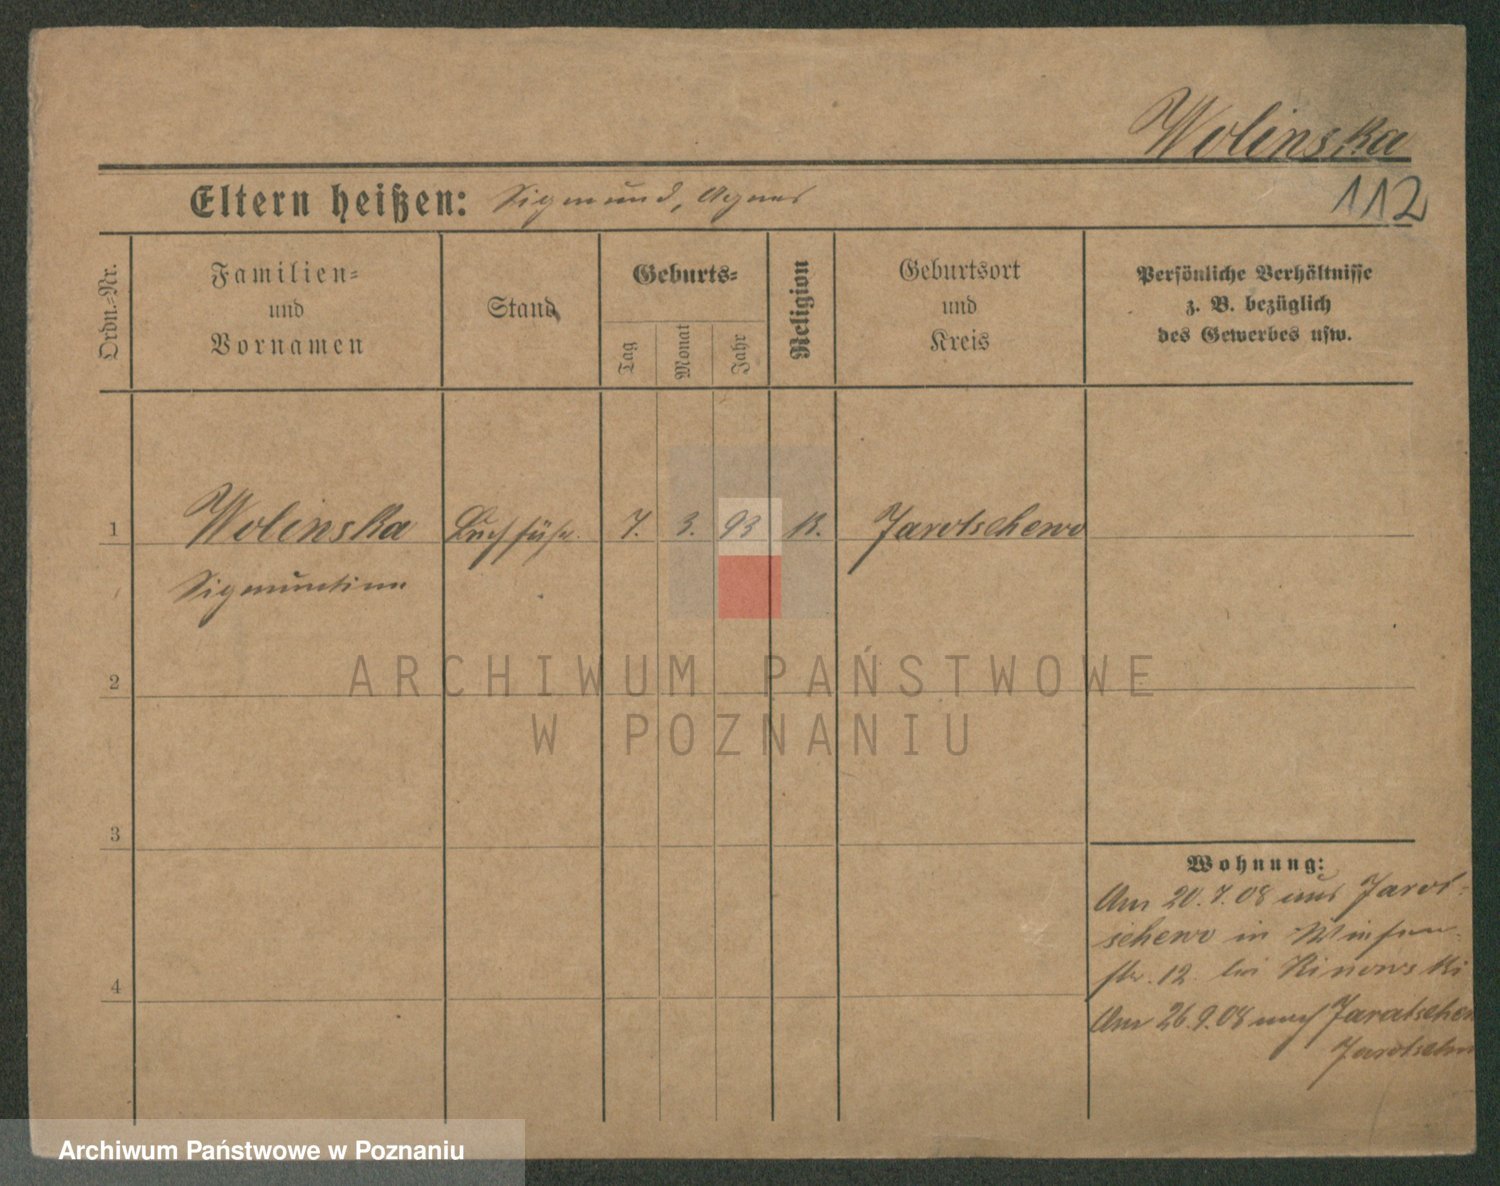 Wolinska
112
Eltern heißen: Sigmund, Agnes
Ordn.-Nr.
Familien-
und
Vornamen
Stand
Geburts-
Tag
Monat
Jahr
Religion
Geburtsort
und
Kreis
Persönliche Verhältnisse
z. B. bezüglich
des Gewerbes usw.
1 Wolinska Buchfüh. 7. 3. 93 K. Jarotschewo
2
3
4
Wohnung:
Am 20.7.08 aus Jarot-
schewo in
str. 12. bei Rinowski
Am 26.9.08 nach
ARCHIWUM PAŃSTWOWE
W POZNANIU
Archiwum Państwowe w Poznaniu